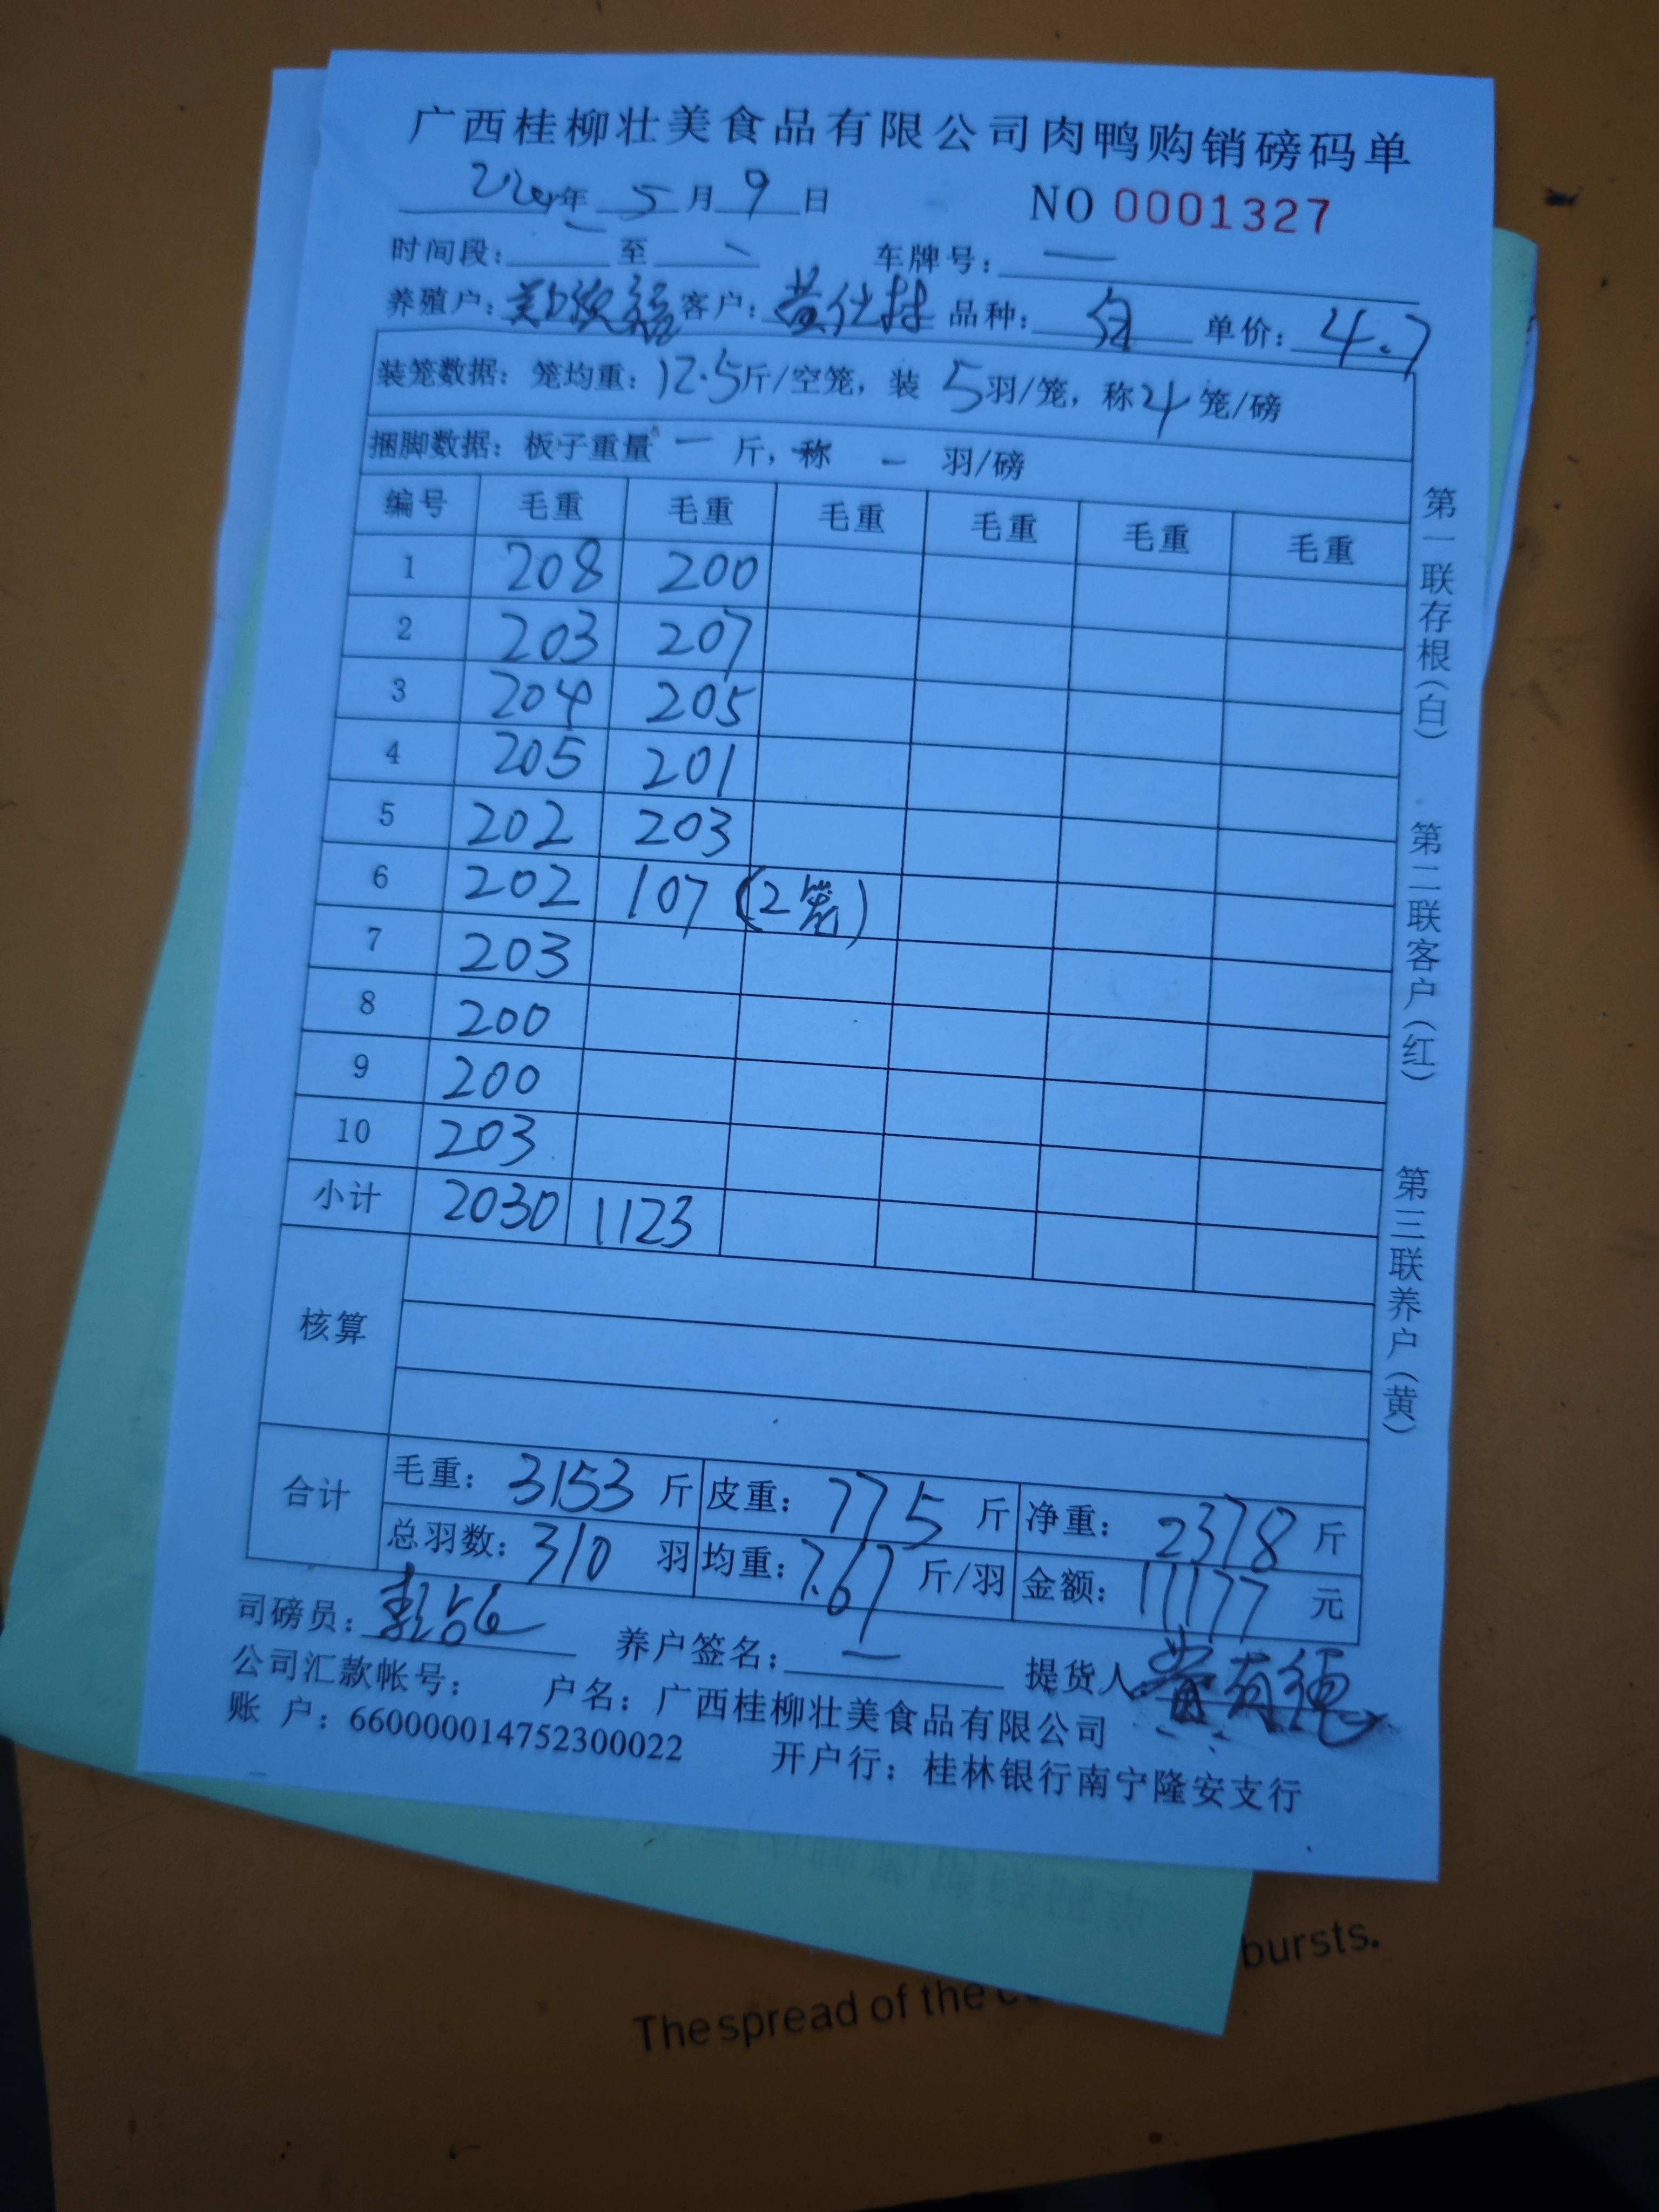 广西桂柳壮美食品有限公司肉鸭购销磅码单
年 5 月 9 日 NO 0001327
时间段: 一 至 一 车牌号: 一
养殖户: 客户: 黄仕林 品种: 白 单价: 4.7
装笼数据: 笼均重: 12.5斤/空笼, 装 5羽/笼, 称4笼/磅
捆脚数据: 板子重量 一 斤, 称 一 羽/磅
编号 毛重 毛重 毛重 毛重 毛重 毛重
1 208 200
2 203 207
3 204 205
4 205 201
5 202 203
6 202 107 (2笼)
7 203
8 200
9 200
10 203
小计 2030 1123
核算
合计 毛重: 3153 斤 皮重: 775 斤 净重: 2378 斤
总羽数: 310 羽 均重: 7.67 斤/羽 金额: 11177 元
司磅员: 养户签名: 一 提货人 黄有德
公司汇款帐号: 户名: 广西桂柳壮美食品有限公司
账 户: 660000014752300022 开户行: 桂林银行南宁隆安支行
第一联存根(白) 第二联客户(红) 第三联养户(黄)
bursts.
The spread of the